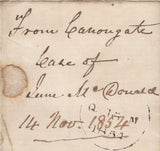 From Canongate
Case of
Jane McDonald
14 Nov. 1854